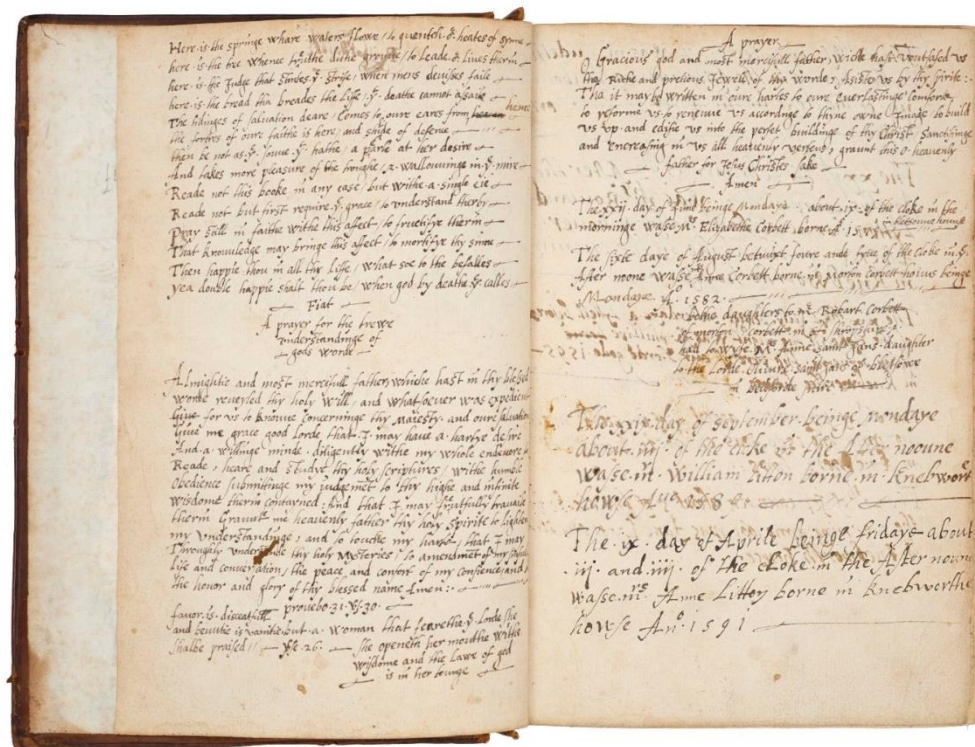 Here is the springe whare waters flowe / to quentch or heates of synne
here is the tre whence truthe dithe growe / to Leade or lives therin
here is the Judge that stintes ye strife / when mens devises faile
here is the bread tha breades the Life / yt deathe cannot assaile
The tidinges of salvation deare / Comes to oure eares from heaven hence
the fortres of oure faithe is here / and shilde of defence
then be not as ye sowe yt hathe / a parle at her desire
And takes more pleasure of the troughe / a wallowinge in ye mire
Reade not this booke in any case / but withe a single eie
Reade not but first require ye grace / to understand therby
Pray still in faithe withe this affect / to fructifye therin
That knowledge may bringe this affect / to mortifye thy sinne
Then happie thou in all thy Life / what soe to the befalles
yea double happie shalt thou be / when god by deathe ye calles
Fiat
A prayer for the trewe
understandinge of
gods worde
Almightie and most mercifull father, whiche hast in thy blessed
worde reveyled thy holy will, and whatsoever was expedient
for us to knowe concerninge thy majesty and oure salvation
Give me grace good Lorde that I may have a hartye desire
And a willinge minde diligently withe my whole endevore to
Reade, heare and studye thy holy scriptures, withe humele
Obedience submittinge my judgemet to thy highe and infinite
wisdome therin contayned. And that I may frutfully travaile
therin Graunt me heavenly father thy holy spirite to lighten
my understandinge, and to touche my harte, that I may
Througly understande thy holy mysteries, to amendmet of my
Life and conversation, the peace and comfort of my consience and
the honor and glory of thy blessed name Amen
provebo 31 vs 30
favor is disceatfull
and beuutie is vanitie but a woman that fearethe ye Lorde she
shalbe praised // vse 26 she openeth her mouthe withe
wisdome and the Lawe of god
is in her tounge
A prayer
O Gracious god and most mercifull father, wiche hast voutsafed us
thy Riche and precious Jewell of tha worde, Asiste us by thy spirite
Tha it may be written in oure hartes to oure everlastinge comforte
to reforme us to renewe us accordinge to thyne owne Image to build
us up and edifie us into the perfet buildinge of thy Christ Sanctifinge
and encreasing in us all heavenly vertues, graunt this o heavenly
father for Jesus Christes sake
Amen
The xxij day of June beinge Mondaye about ix of the cloke in the
morninge wase mrs Elizabethe Corbett borne Ao 15
The sixte daye of August betwixt foure and fyve of the clobe in ye
After noone wasse Anne Corbett borne in Morton Corbett howse beinge
Mondaye Ao 1582
bothe daughters to mr Robart Corbett
of morton corbett in Shropshyre
had to wyfe Mrs Anne saint Jans daughter
to the Lorde Olivere saint Jans of bletshowe
in
The xxix day of september beinge mondaye
about iiij of the cloke in the After noune
wase mr William Litton borne in Knebwort
howse Ano 158
The ix day of Aprile beinge fridaye about
iij and iiij of the cloke in the After noune
wasse mrs Anne Litton borne in Knebworthe
howse Ano 1591